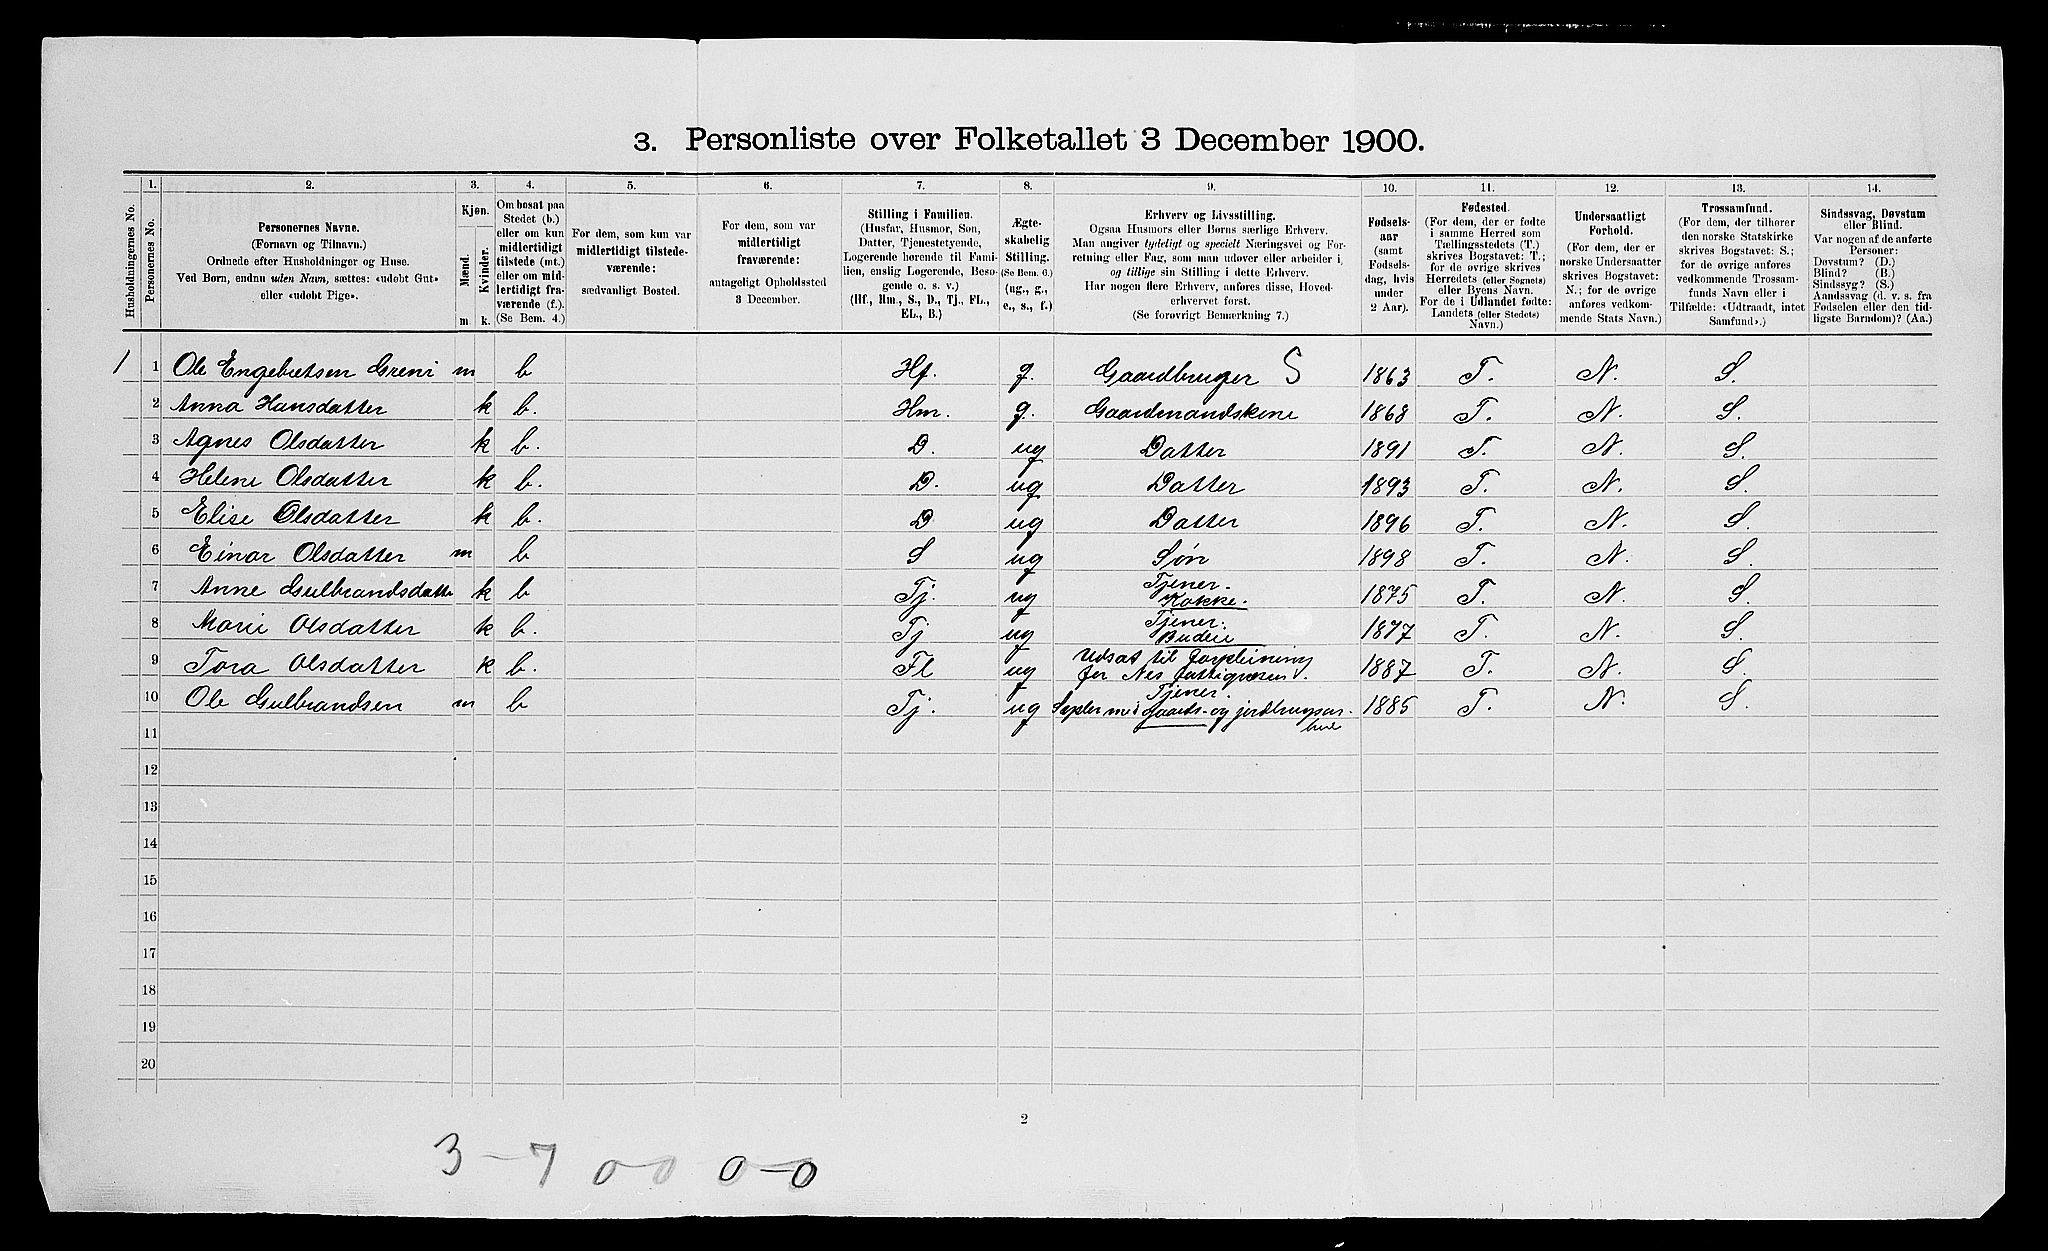 3. Personliste over Folketallet 3 December 1900.
Husholdningernes No.
1.
Personernes No.
2.
Personernes Navne.
(Fornavn og Tilnavn.)
Ordnede efter Husholdninger og Huse.
Ved Børn, endnu uden Navn, sættes: «udøbt Gut»
eller «udøbt Pige».
3.
Kjøn.
Mænd.
Kvinder.
m k.
4.
Om bosat paa
Stedet (b.)
eller om kun
midlertidigt
tilstede (mt.)
eller om mid-
lertidigt fra-
værende (f.).
(Se Bem. 4.)
5.
For dem, som kun var
midlertidigt tilstede-
værende:
sædvanligt Bosted.
6.
For dem, som var
midlertidigt
fraværende:
antageligt Opholdssted
3 December.
7.
Stilling i Familien.
(Husfar, Husmor, Søn,
Datter, Tjenestetyende,
Logerende hørende til Fami-
lien, enslig Logerende, Besø-
gende o. s. v.)
(Hf., Hm., S., D., Tj., FL.,
EL., B.)
8.
Ægte-
skabelig
Stilling.
(Se Bem. 6.)
(ug., g.,
e., s., f.)
9.
Erhverv og Livsstilling.
Ogsaa Husmors eller Børns særlige Erhverv.
Man angiver tydeligt og specielt Næringsvei og For-
retning eller Fag, som man udøver eller arbeider i,
og tillige sin Stilling i dette Erhverv.
Har nogen flere Erhverv, anføres disse, Hoved-
erhvervet først.
(Se forøvrigt Bemærkning 7.)
10.
Fødsels-
aar
(samt
Fødsels-
dag, hvis
under
2 Aar).
11.
Fødested.
(For dem, der er fødte
i samme Herred som
Tællingsstedets (T.)
skrives Bogstavet: T.;
for de øvrige skrives
Herredets (eller Sognets)
eller Byens Navn.
For de i Udlandet fødte:
Landets (eller Stedets)
Navn.)
12.
Undersaatligt
Forhold.
(For dem, der er
norske Undersaatter
skrives Bogstavet:
N.; for de øvrige
anføres vedkom-
mende Stats Navn.)
13.
Trossamfund.
(For dem, der tilhører
den norske Statskirke
skrives Bogstavet: S.;
for de øvrige anføres
vedkommende Trossam-
funds Navn eller i
Tilfælde: «Udtraadt, intet
Samfund».)
14.
Sindssvag, Døvstum
eller Blind.
Var nogen af de anførte
Personer:
Døvstum? (D.)
Blind? (B.)
Sindssyg? (S.)
Aandssvag (d. v. s. fra
Fødselen eller den tid-
ligste Barndom)? (Aa.)
1 1 Ole Engebretsen Greni m b Hf. g. Gaardbruger S 1863 T. N. S.
2 Anna Hansdatter k b. Hm. g. Gaardmandskone 1868 T. N. S.
3 Agnes Olsdatter k b. D. ug Datter 1891 T. N. S.
4 Helene Olsdatter k b. D. ug Datter 1893 T. N. S.
5 Elise Olsdatter k b. D ug Datter 1896 T. N. S.
6 Einar Olsdatter m b S ug Søn 1898 T. N. S.
7 Anne Gulbrandsdatte k b Tj. ug Tjener. Kokke. 1875 T. N. S.
8 Marie Olsdatter k b. Tj ug Tjener. Budeie 1877 T. N. S.
9 Tora Olsdatter k b. Fl ug Udsat til Forpleining
for Nes Fattigvæsen. 1887 T. N. S.
10 Ole Gulbrandsen m b Tj. ug Tjener.
Gaards- og jordbrugsar- 1885 T. N. S.
11
12
13
14
15
16
17
18
19
20
2
3-7 00 0-0